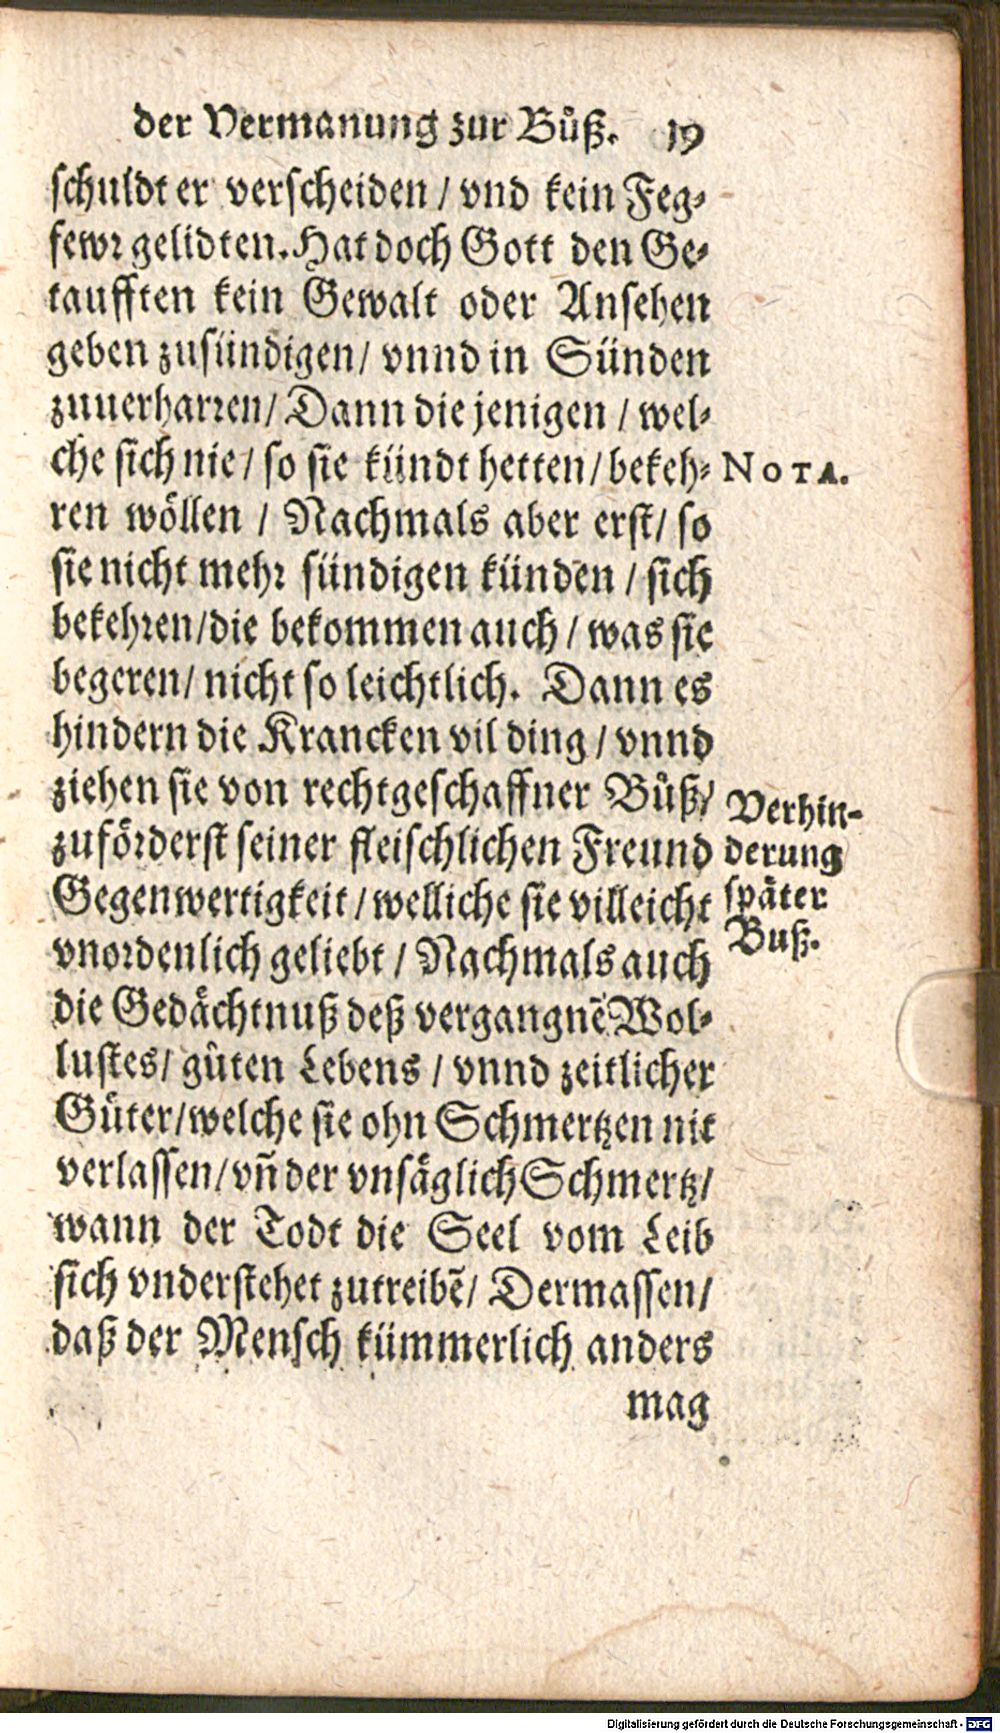 der Vermanung zur Bůß. 19
schuldt er verscheiden / vnd kein Feg-
fewr gelidten. Hat doch Gott den Ge-
taufften kein Gewalt oder Ansehen
geben zusündigen / vnnd in Sünden
zuuerharren / Dann die jenigen / wel-
che sich nie / so sie kündt hetten / bekeh-
NOTA.
ren wöllen / Nachmals aber erst / so
sie nicht mehr sündigen künden / sich
bekehren / die bekommen auch / was sie
begeren / nicht so leichtlich. Dann es
hindern die Krancken vil ding / vnnd
ziehen sie von rechtgeschaffner Bůß /
zuförderst seiner fleischlichen Freund
Gegenwertigkeit / welliche sie villeicht
vnordenlich geliebt / Nachmals auch
Verhin-
derung
später
Buß.
die Gedächtnuß deß vergangnẽ Wol-
lustes / gůten Lebens / vnnd zeitlicher
Güter / welche sie ohn Schmertzen nit
verlassen / vñ der vnsäglich Schmertz /
wann der Todt die Seel vom Leib
sich vnderstehet zutreibẽ / Dermassen /
daß der Mensch kümmerlich anders
mag
Digitalisierung gefördert durch die Deutsche Forschungsgemeinschaft - DFG